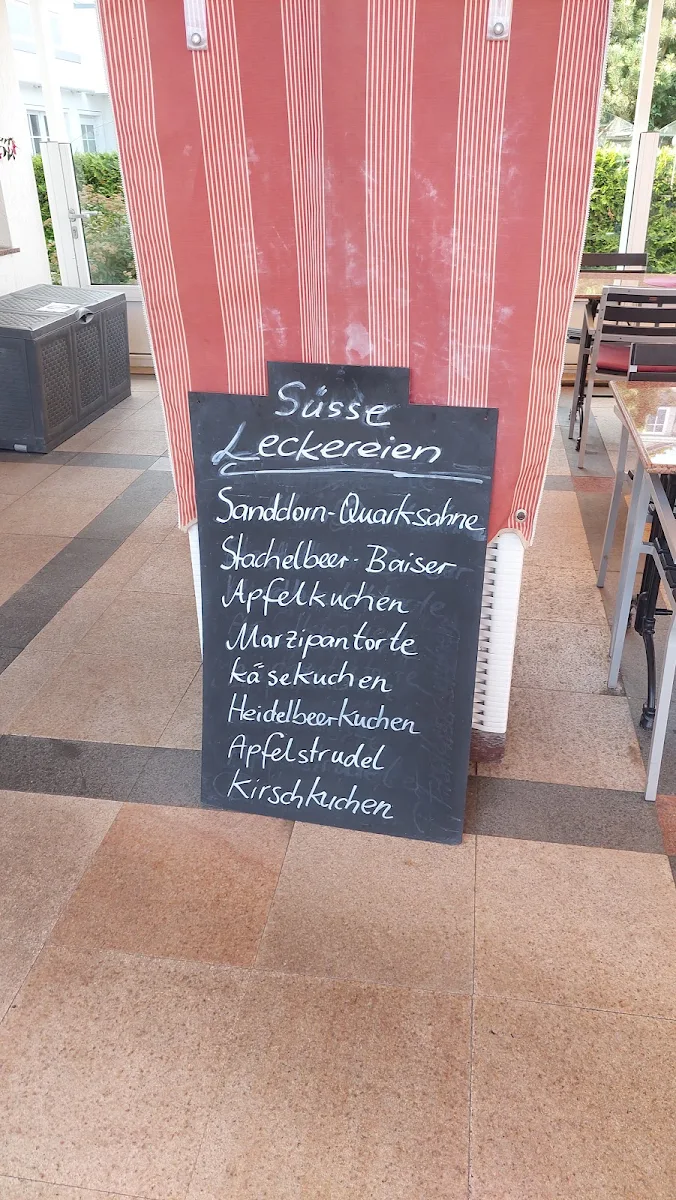 Süsse
Leckereien
Sanddorn-Quarksahne
Stachelbeer-Baiser
Apfelkuchen
Marzipantorte
Käsekuchen
Heidelbeerkuchen
Apfelstrudel
Kirschkuchen